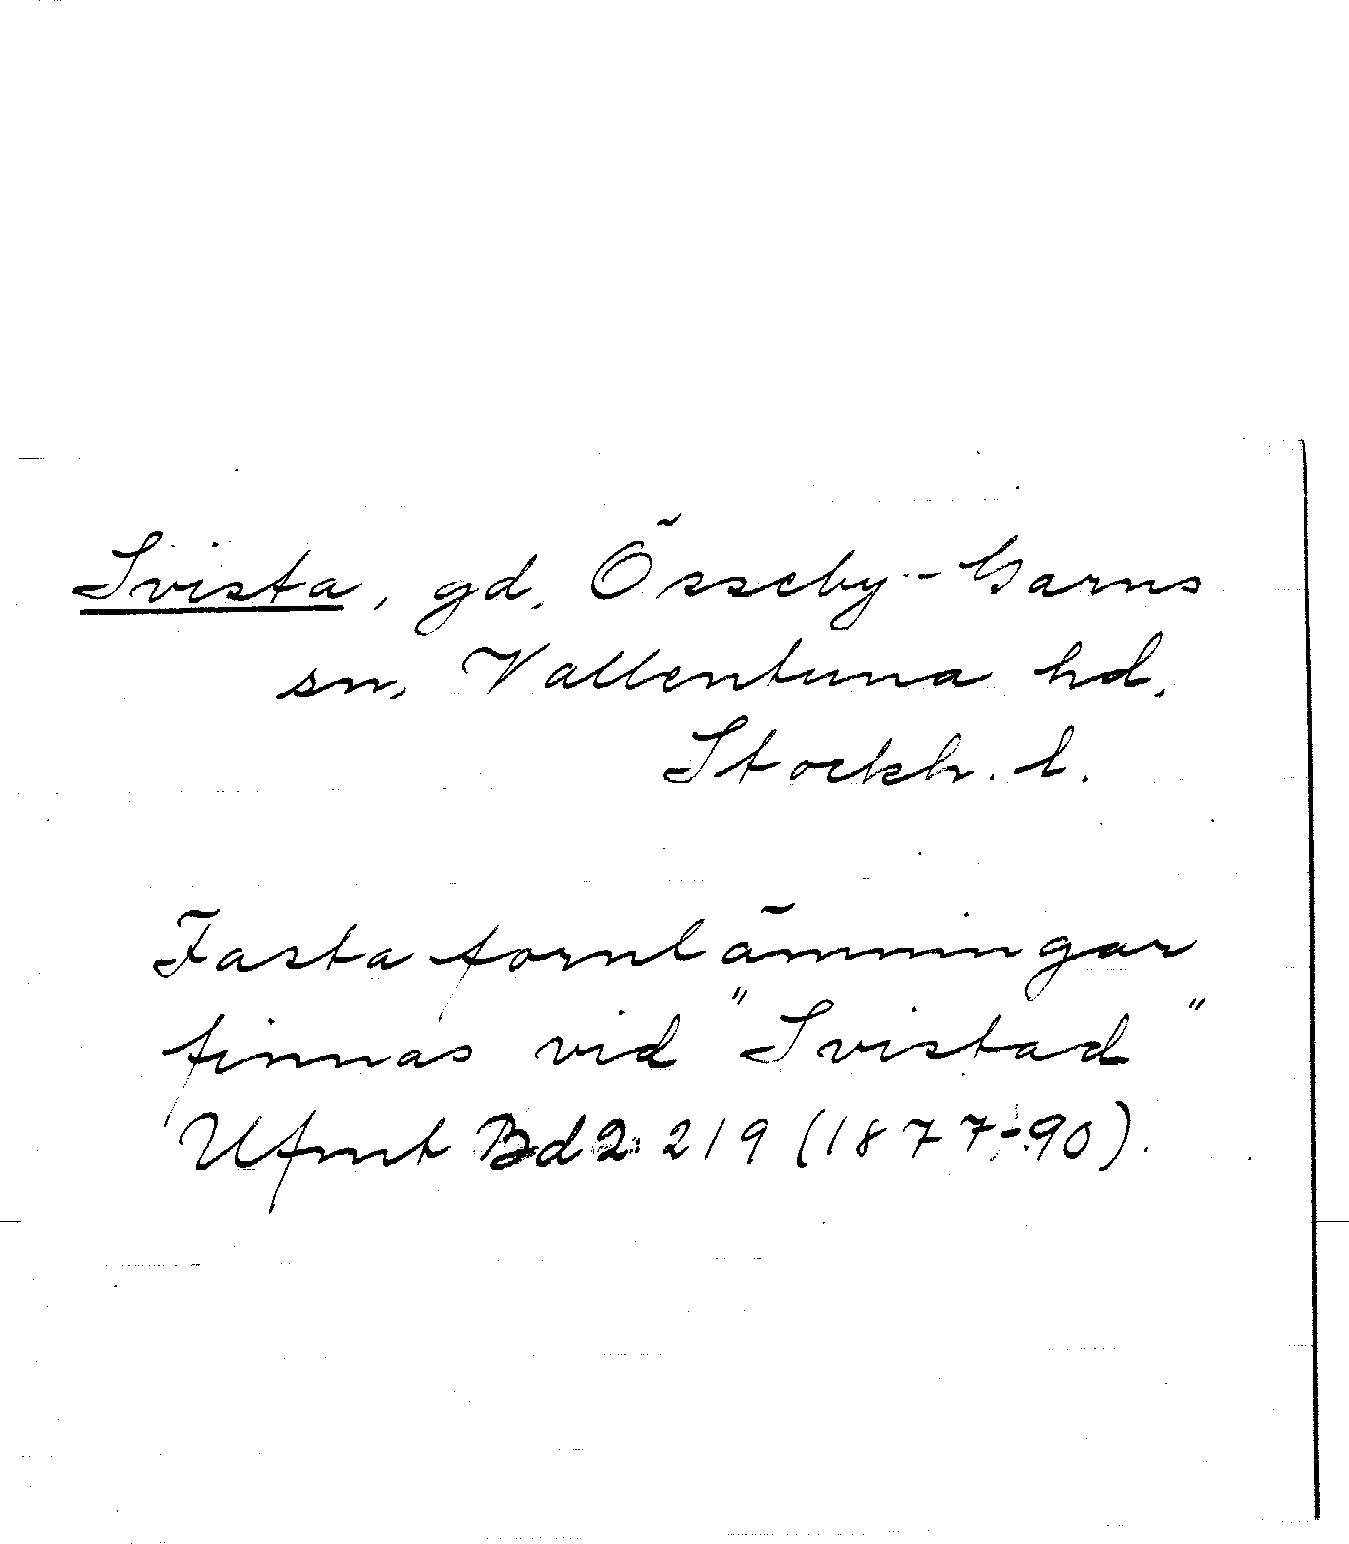 Svista, gd, Össeby-Garns
sn, Vallentuna hd.
Stockh. l.
Fasta fornlämningar
finnas vid "Svistad"
Ufmt Bd2 219 (1877-90).